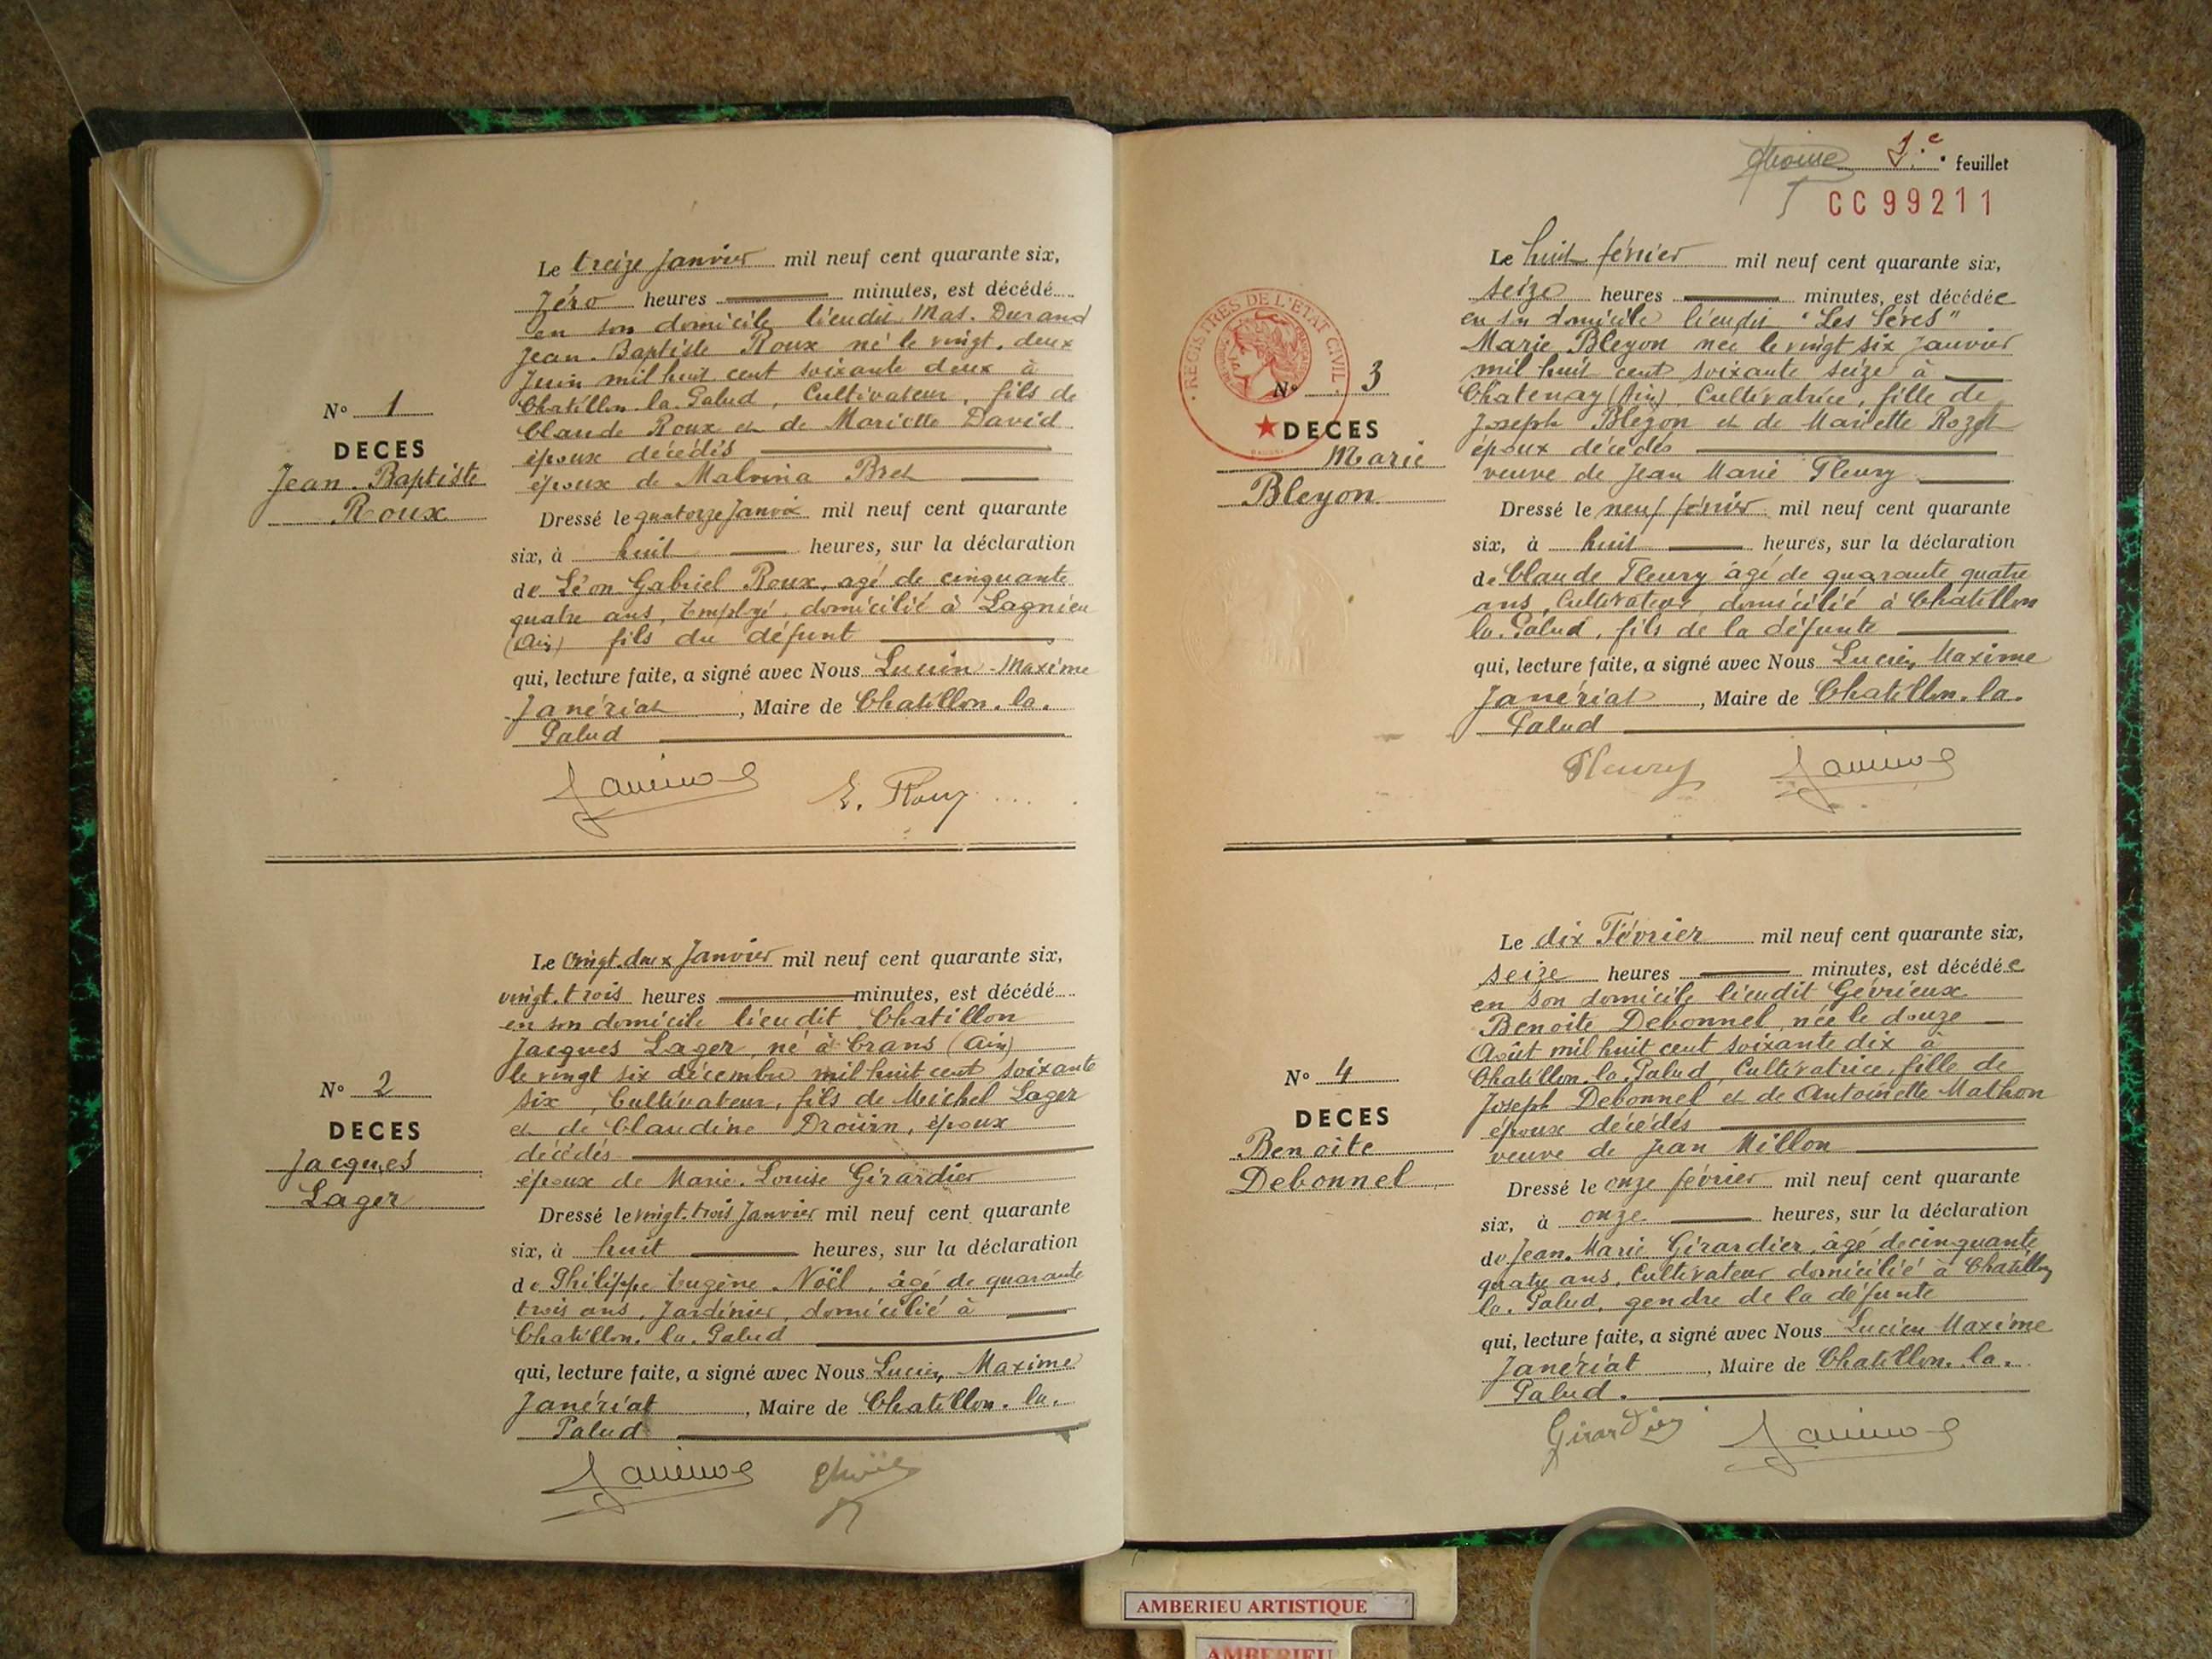 Le treize Janvier mil neuf cent quarante six,
Zéro heures minutes, est décédé
en son domicile lieudit Mas. Durand
Jean. Baptiste Roux né le vingt. deux
Juin mil huit cent soixante deux à
Chatillon. la. Palud, Cultivateur, fils de
Claude Roux et de Mariette David
époux décédés
époux de Malvina Bret
N° 1
DECES
Jean. Baptiste
Roux
Dressé le quatorze Janvier mil neuf cent quarante
six, à huit heures, sur la déclaration
de Léon Gabriel Roux, agé de cinquante
quatre ans, Employé, domicilié à Lagnieu
(Ain) fils du défunt
qui, lecture faite, a signé avec Nous Lucien - Maxime
Janériat, Maire de Chatillon. la.
Palud
Le vingt. deux Janvier mil neuf cent quarante six,
vingt. trois heures minutes, est décédé
en son domicile lieudit Chatillon
Jacques Lager, né à Crans (Ain)
le vingt six décembre mil huit cent soixante
six, Cultivateur, fils de Michel Lager
et de Claudine Drouin, époux
décédés
époux de Marie. Louise Girardier
N° 2
DECES
Jacques
Lager
Dressé le vingt. trois Janvier mil neuf cent quarante
six, à huit heures, sur la déclaration
de Philippe Eugène Noël, âgé de quarante
trois ans, Jardinier, domicilié à
Chatillon. la. Palud
qui, lecture faite, a signé avec Nous Lucien Maxime
Janériat, Maire de Chatillon. la.
Palud
1.e feuillet
CC 99211
Le huit février mil neuf cent quarante six,
seize heures minutes, est décédée
en son domicile lieudit "Les Sères"
Marie Bleyon née le vingt six Janvier
mil huit cent soixante seize à
Chatenay (Ain) Cultivatrice, fille de
Joseph Bleyon et de Mariette Rozet
époux décédés
veuve de Jean Marie Fleury
REGISTRES DE L'ETAT CIVIL
N° 3
DECES
Marie
Bleyon
Dressé le neuf février mil neuf cent quarante
six, à huit heures, sur la déclaration
de Claude Fleury âgé de quarante quatre
ans, Cultivateur, domicilié à Chatillon
la. Palud, fils de la défunte
qui, lecture faite, a signé avec Nous Lucien Maxime
Janériat, Maire de Chatillon. la.
Palud
Fleury
Le dix Février mil neuf cent quarante six,
seize heures minutes, est décédée
en son domicile lieudit Gévrieux
Benoite Debonnel, née le douze
Août mil huit cent soixante dix à
Chatillon. la. Palud, Cultivatrice, fille de
Joseph Debonnel et de Antoinette Mathon
époux décédés
veuve de Jean Millon
N° 4
DECES
Benoite
Debonnel
Dressé le onze février mil neuf cent quarante
six, à onze heures, sur la déclaration
de Jean. Marie Girardier, âgé de cinquante
quatre ans, Cultivateur domicilié à Chatillon
la. Palud, gendre de la défunte
qui, lecture faite, a signé avec Nous Lucien Maxime
Janériat, Maire de Chatillon. la.
Palud.
Girardier
AMBERIEU ARTISTIQUE
AMBERIEU